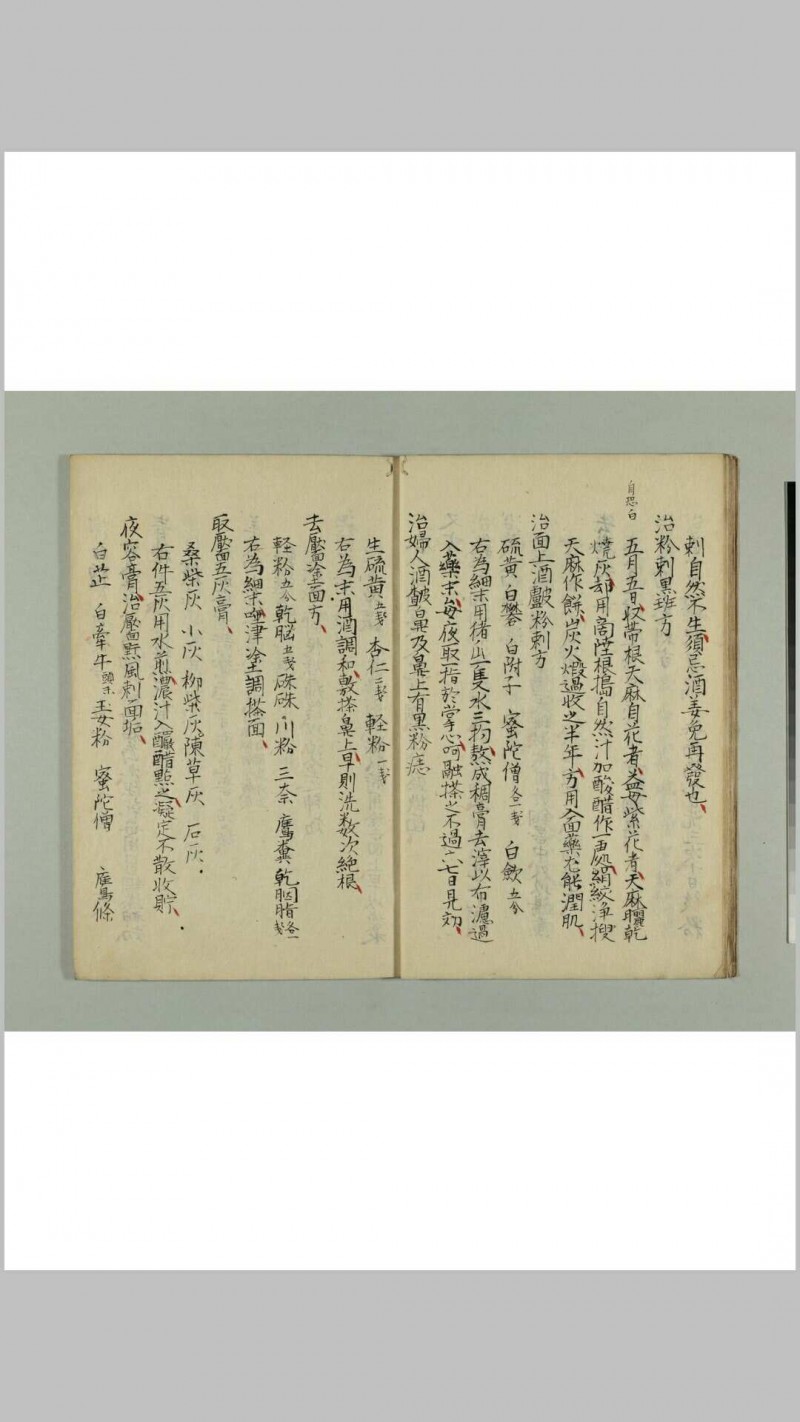 刺自然不生須忌酒姜免再發也
治粉刺黑班方
自恐白
五月五日收帶根天麻自花者益母紫花者天麻曬乾
燒灰却用商陸根搗自然汁加酸醋作一處絹絞淨搜
天麻作餅炭火煅過收之半年方用入面藥尤能潤肌
治面上酒皶粉刺方
硫黃 白礬 白附子 蜜陀僧各一戔 白歛五分
右為細末用猪 一隻水三 熬成稠膏去滓以布濾過
入藥末每夜取一指於掌心呵融搽之不過六七日見効
治婦人酒皶鼻及鼻上有黑粉痣
生硫黃五戔 杏仁二戔 軽粉一戔
右為末用酒調和敷搽鼻上早則洗数次絶根
去靨塗面方
軽粉五分 乾脳五戔 硃硃 川粉 三奈 鷹糞 乾胭脂各一戔
右為細末唾津塗調搽面
取靨五灰膏
桑柴灰 小灰 柳柴灰 陳草灰 石灰
右件五灰用水煎濃汁入釅醋點之凝定不散收貯
夜容膏治靨點風刺面垢
白芷 白牽牛頭末 玉女粉 蜜陀僧 鷹條